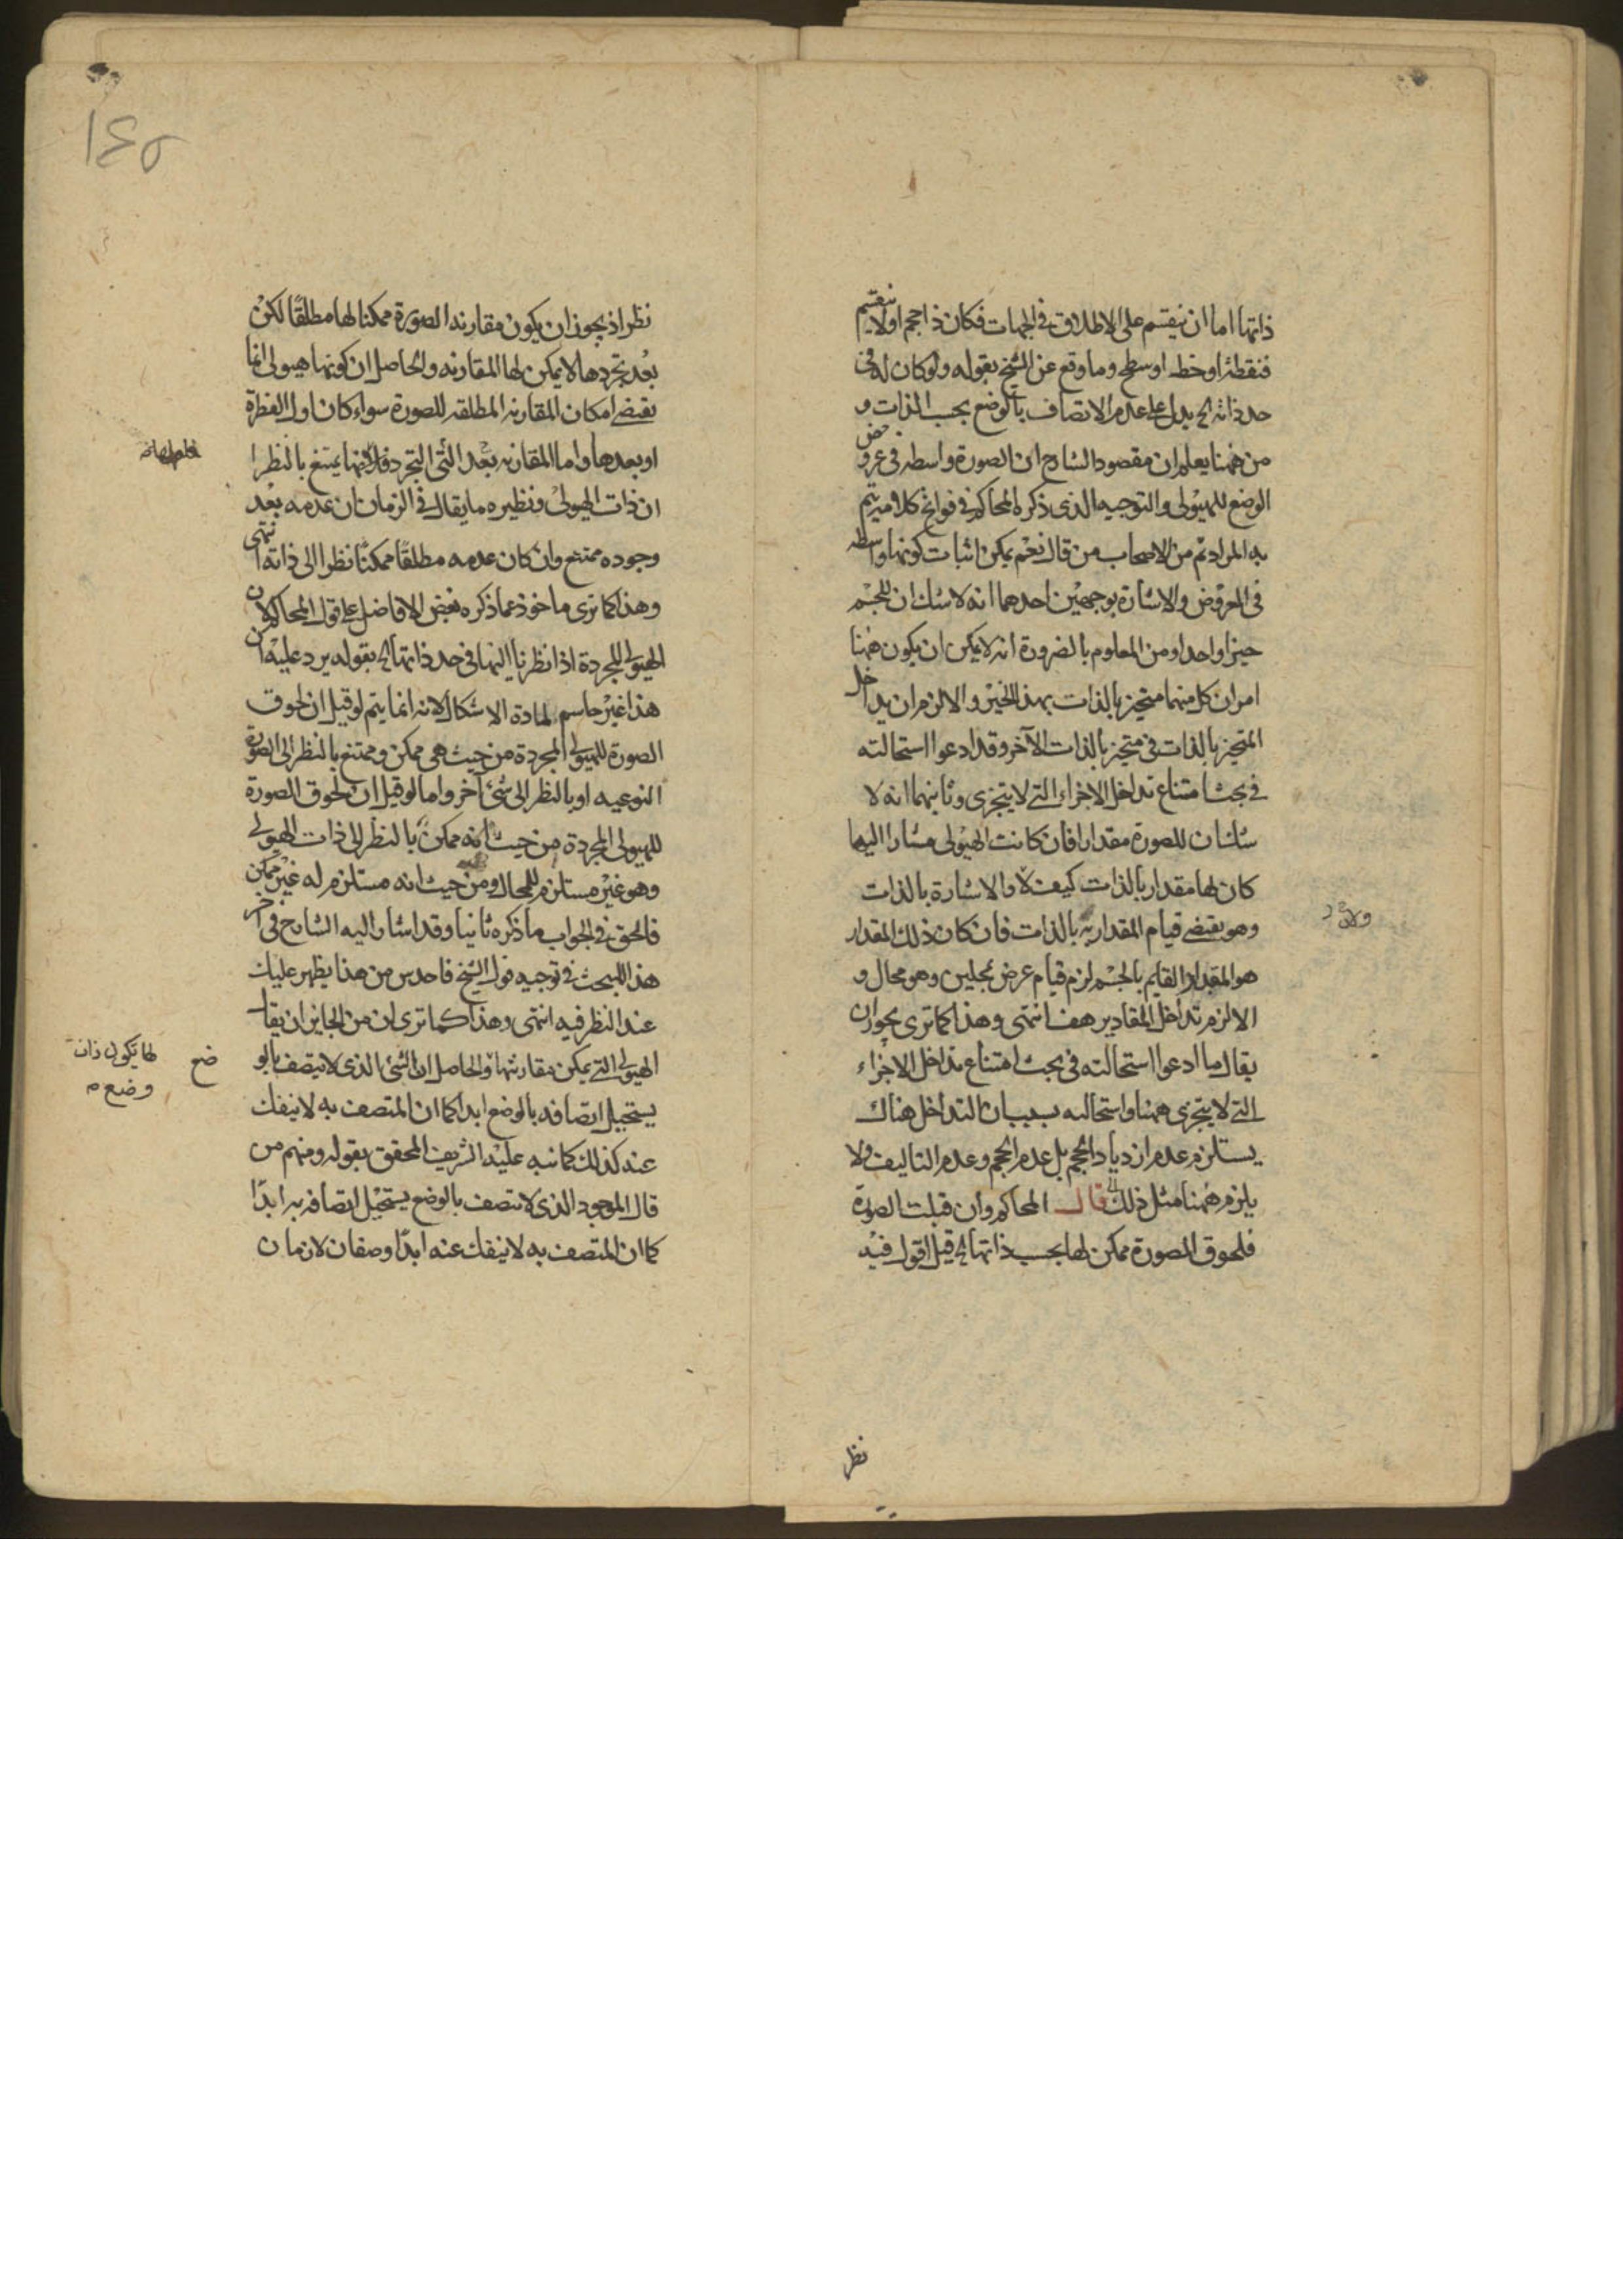 ذاتها اما ان ينقسم على الاطلاق فى الجهات فكان ذا حجم اولا ينقسم
فنقطة او خط او سطح وما وقع عن الشيخ بقوله ولو كان له فى
حد ذاته الخ يدل على عدم الاتصاف بالوضع بحسب الذات و
من ههنا يعلم ان مقصود الشارح ان الصورة واسطه فى عروض
الوضع للهيولى والتوجيه الذى ذكره المحاكم فى فواتح كلامه يتم
به المراد ثم من الاصحاب من قال نعم يمكن اثبات كونها واسطه
فى العروض والاشارة بوجهين احدهما انه لا شك ان للجسم
حيزا واحدا ومن المعلوم بالضرورة انه لا يمكن ان يكون ههنا
امران كل منهما متحيز بالذات بهذا الحيز والا لزم ان يداخل
المتحيز بالذات فى متحيز بالذات الآخر وقد ادعوا استحالته
فى بحث امتناع تداخل الاجزاء التى لا يتجزى وثانيهما انه لا
شك ان للصورة مقدارا فان كانت الهيولى مشارا اليها
كان لها مقدار بالذات كيف لا والاشارة بالذات
وهو يقتضى قيام المقدار به بالذات فان كان ذلك المقدار
هو المقدار القايم بالجسم لزم قيام عرض بمحلين وهو محال و
الا لزم تداخل المقادير هف انتهى وهذا كما ترى بجواز ان
يقال ما ادعوا استحالته فى بحث امتناع تداخل الاجزاء
التى لا يتجزى ههنا واستحالته بسبب ان التداخل هناك
يستلزم عدم ازدياد الحجم بل عدم الحجم وعدم التاليف ولا
يلزم ههنا مثل ذلك قال المحاكم وان قبلت الصورة
فلحوق الصورة ممكن لها بحسب ذاتها الخ قيل اقول فيه
نظر
نظر اذ يجوز ان يكون مقارنه الصورة ممكنا لها مطلقًا لكن
بعد تجردها لا يمكن لها المقارنه والحاصل ان كونها هيولى انما
يقتضى امكان المقارنه المطلقه للصورة سواء كان اول الفطرة
او بعدها واما المقارنه بعد التجرد يمتنع بالنظر ا
ان ذات الهيولى ونظيره ما يقال فى الزمان ان عدمه بعد
وجوده ممتنع وان كان عدمه مطلقًا ممكنًا نظرا الى ذاته انتهى
وهذا كما ترى ماخوذ عما ذكره بعض الافاضل على قول المحاكم لان
الهيولى المجردة اذا نظرنا اليها فى حد ذاتها الخ بقوله يرد عليه ان
هذا غير حاسم لمادة الاشكال لانه انما يتم لو قيل ان لحوق
الصورة للهيولى المجردة من حيث هى ممكن وممتنع بالنظر الى الصورة
النوعيه او بالنظر الى شئ آخر واما لو قيل ان لحوق الصورة
للهيولى المجردة من حيث انه ممكن بالنظر الى ذات الهيولى
وهو غير مستلزم للمحال ومن حيث انه مستلزم له غير ممكن
فالحق فى الجواب ما ذكره ثانيا وقد اشار اليه الشارح فى آخر
هذا المبحث فى توجيه قول الشيخ فاحدس من هذا يظهر عليك
عند النظر فيه انتهى وهذا كما ترى ان من الجايز ان يقا
الهيولى التى يمكن مقارنتها والحاصل ان الشئ الذى لا يتصف بالو
ضع
لها يكون ذات
وضع م
يستحيل اتصافه بالوضع ابدا كما ان المتصف به لا ينفك
عند كذلك كما نبه عليه الشريف المحقق بقوله ومنهم من
قال الموجود الذى لا يتصف بالوضع يستحيل اتصافه به ابدًا
كما ان المتصف به لا ينفك عنه ابدًا وصفان لازمان